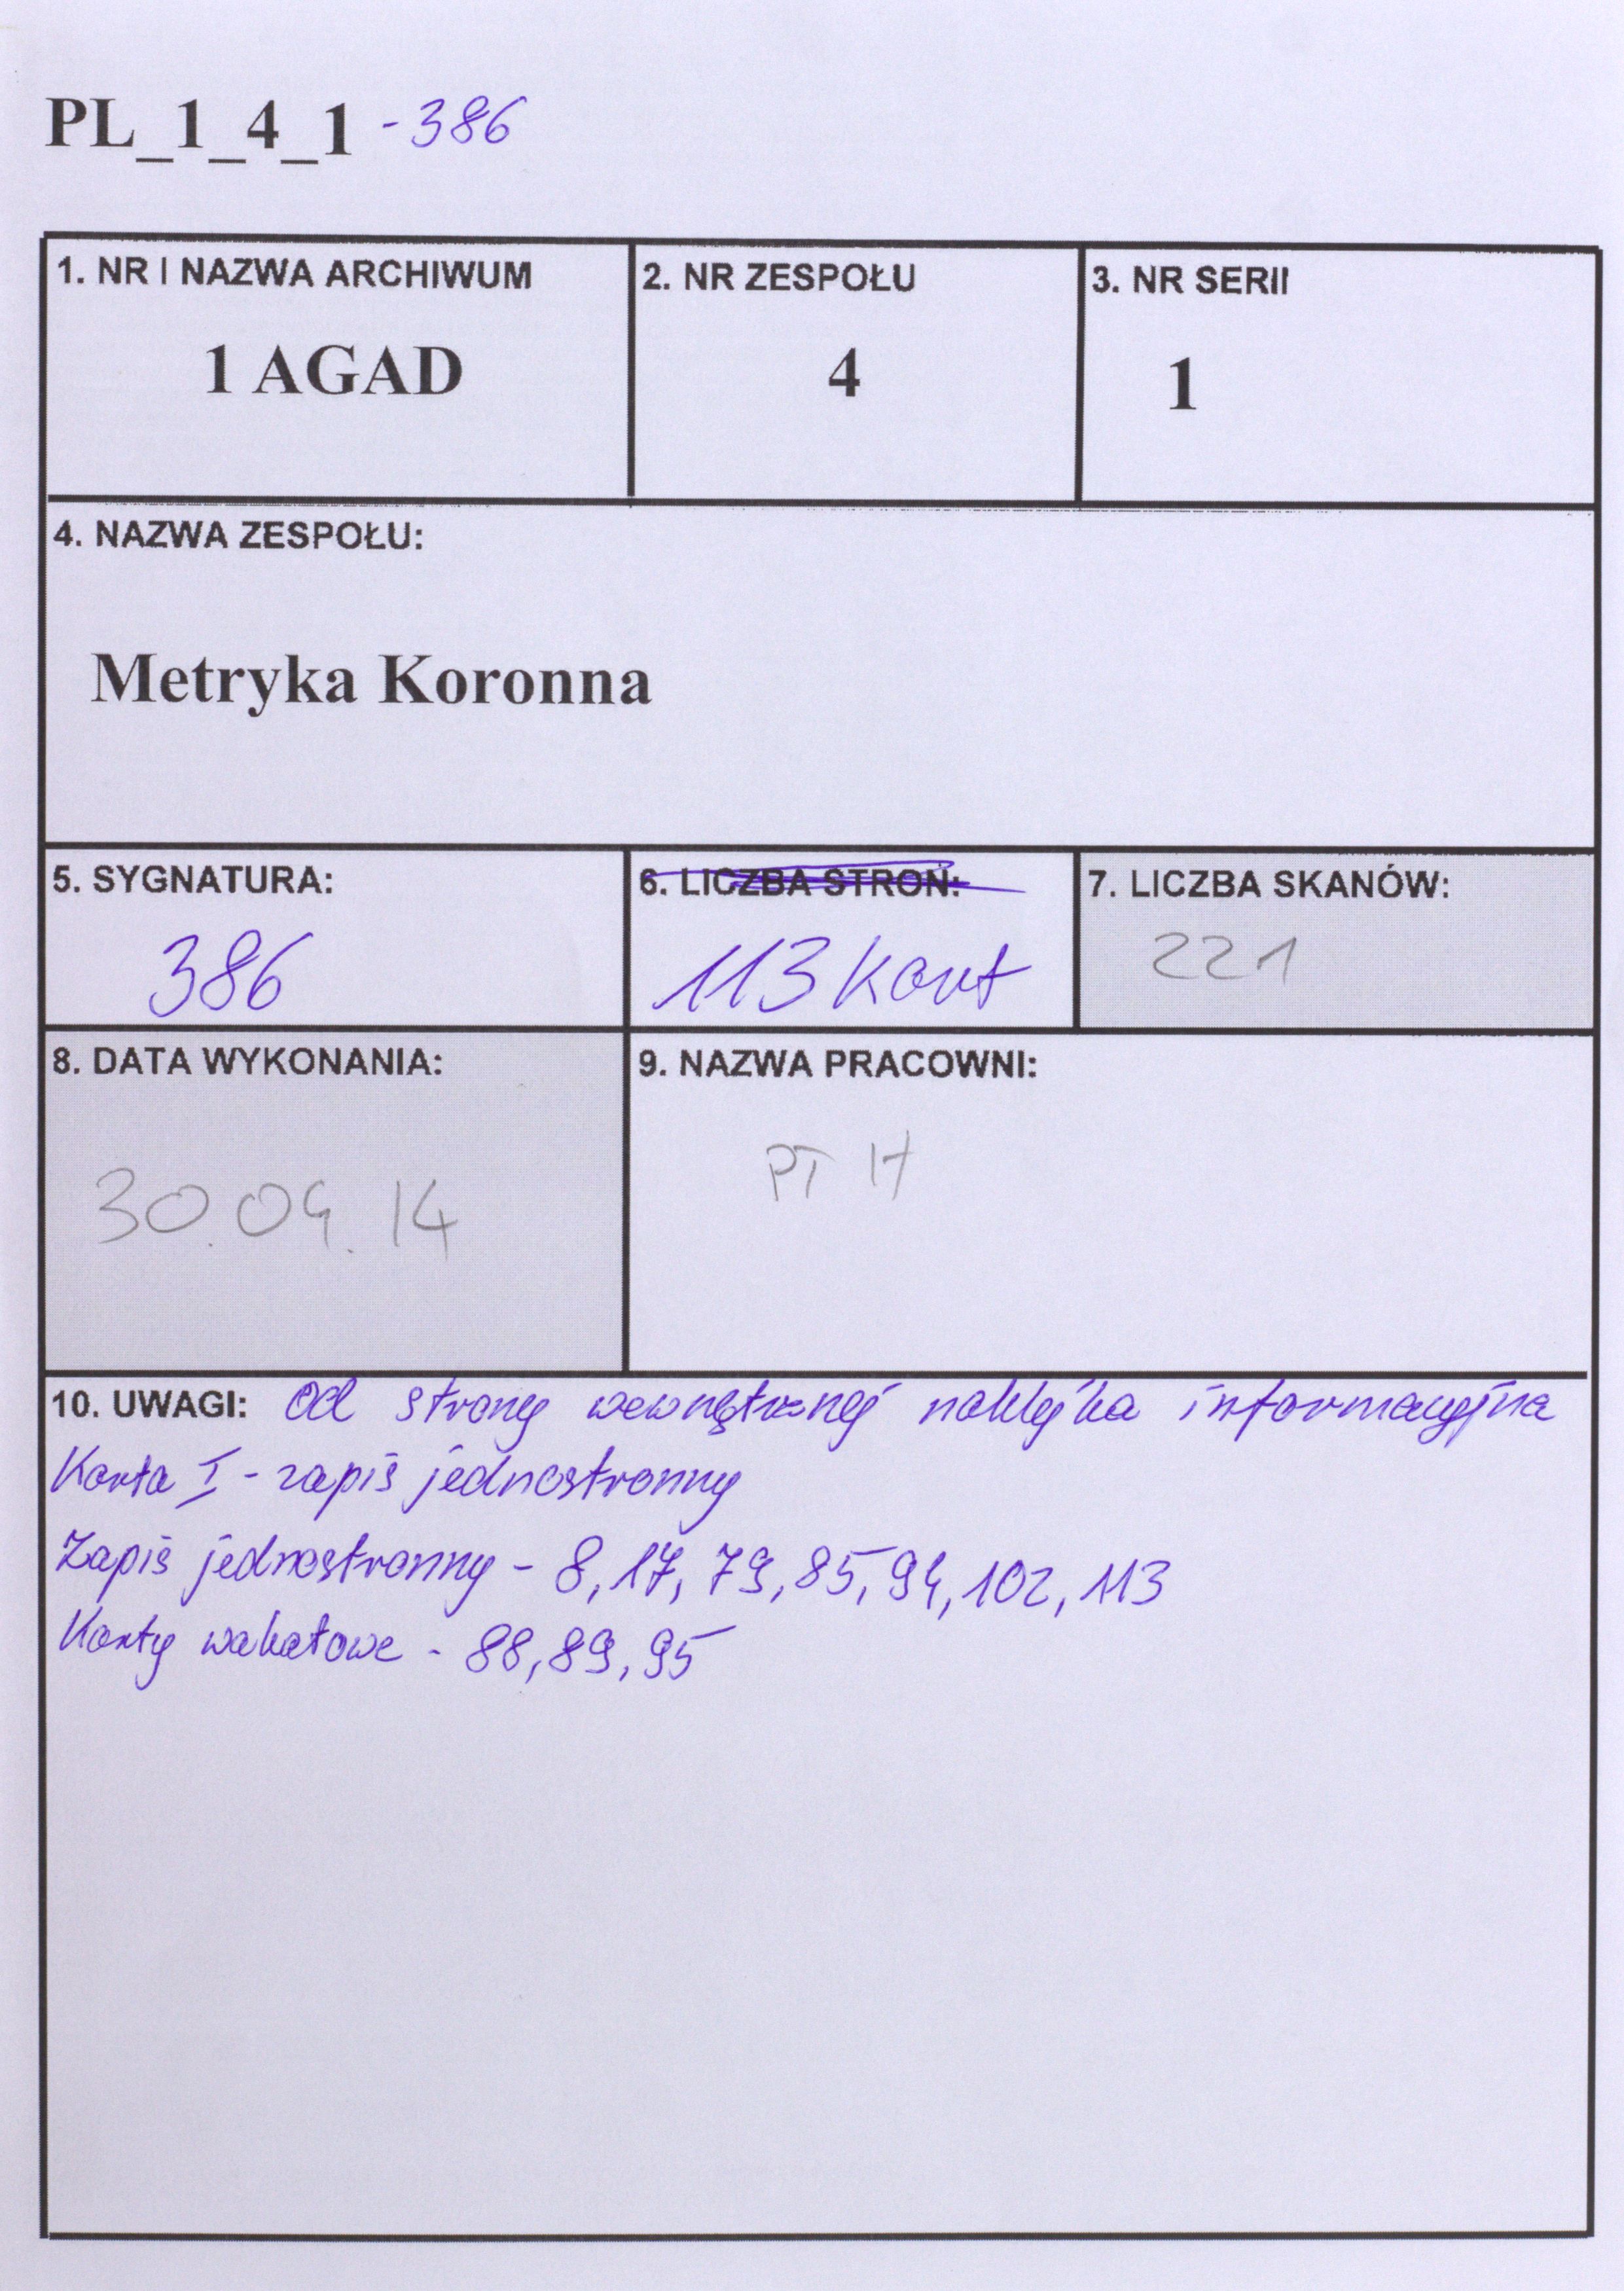 PL_1_4_1 - 386
1. NR I NAZWA ARCHIWUM
1 AGAD
2. NR ZESPOŁU
4
3. NR SERII
1
4. NAZWA ZESPOŁU:
Metryka Koronna
5. SYGNATURA:
386
6. LICZBA STRON:
113 kart
7. LICZBA SKANÓW:
221
8. DATA WYKONANIA:
30.04.14
9. NAZWA PRACOWNI:
PT 17
10. UWAGI: Od strony wewnętrznej naklejka informacyjna
Karta I - zapis jednostronny
Zapis jednostronny - 8, 17, 79, 85, 94, 102, 113
Karty wakatowe - 88, 89, 95